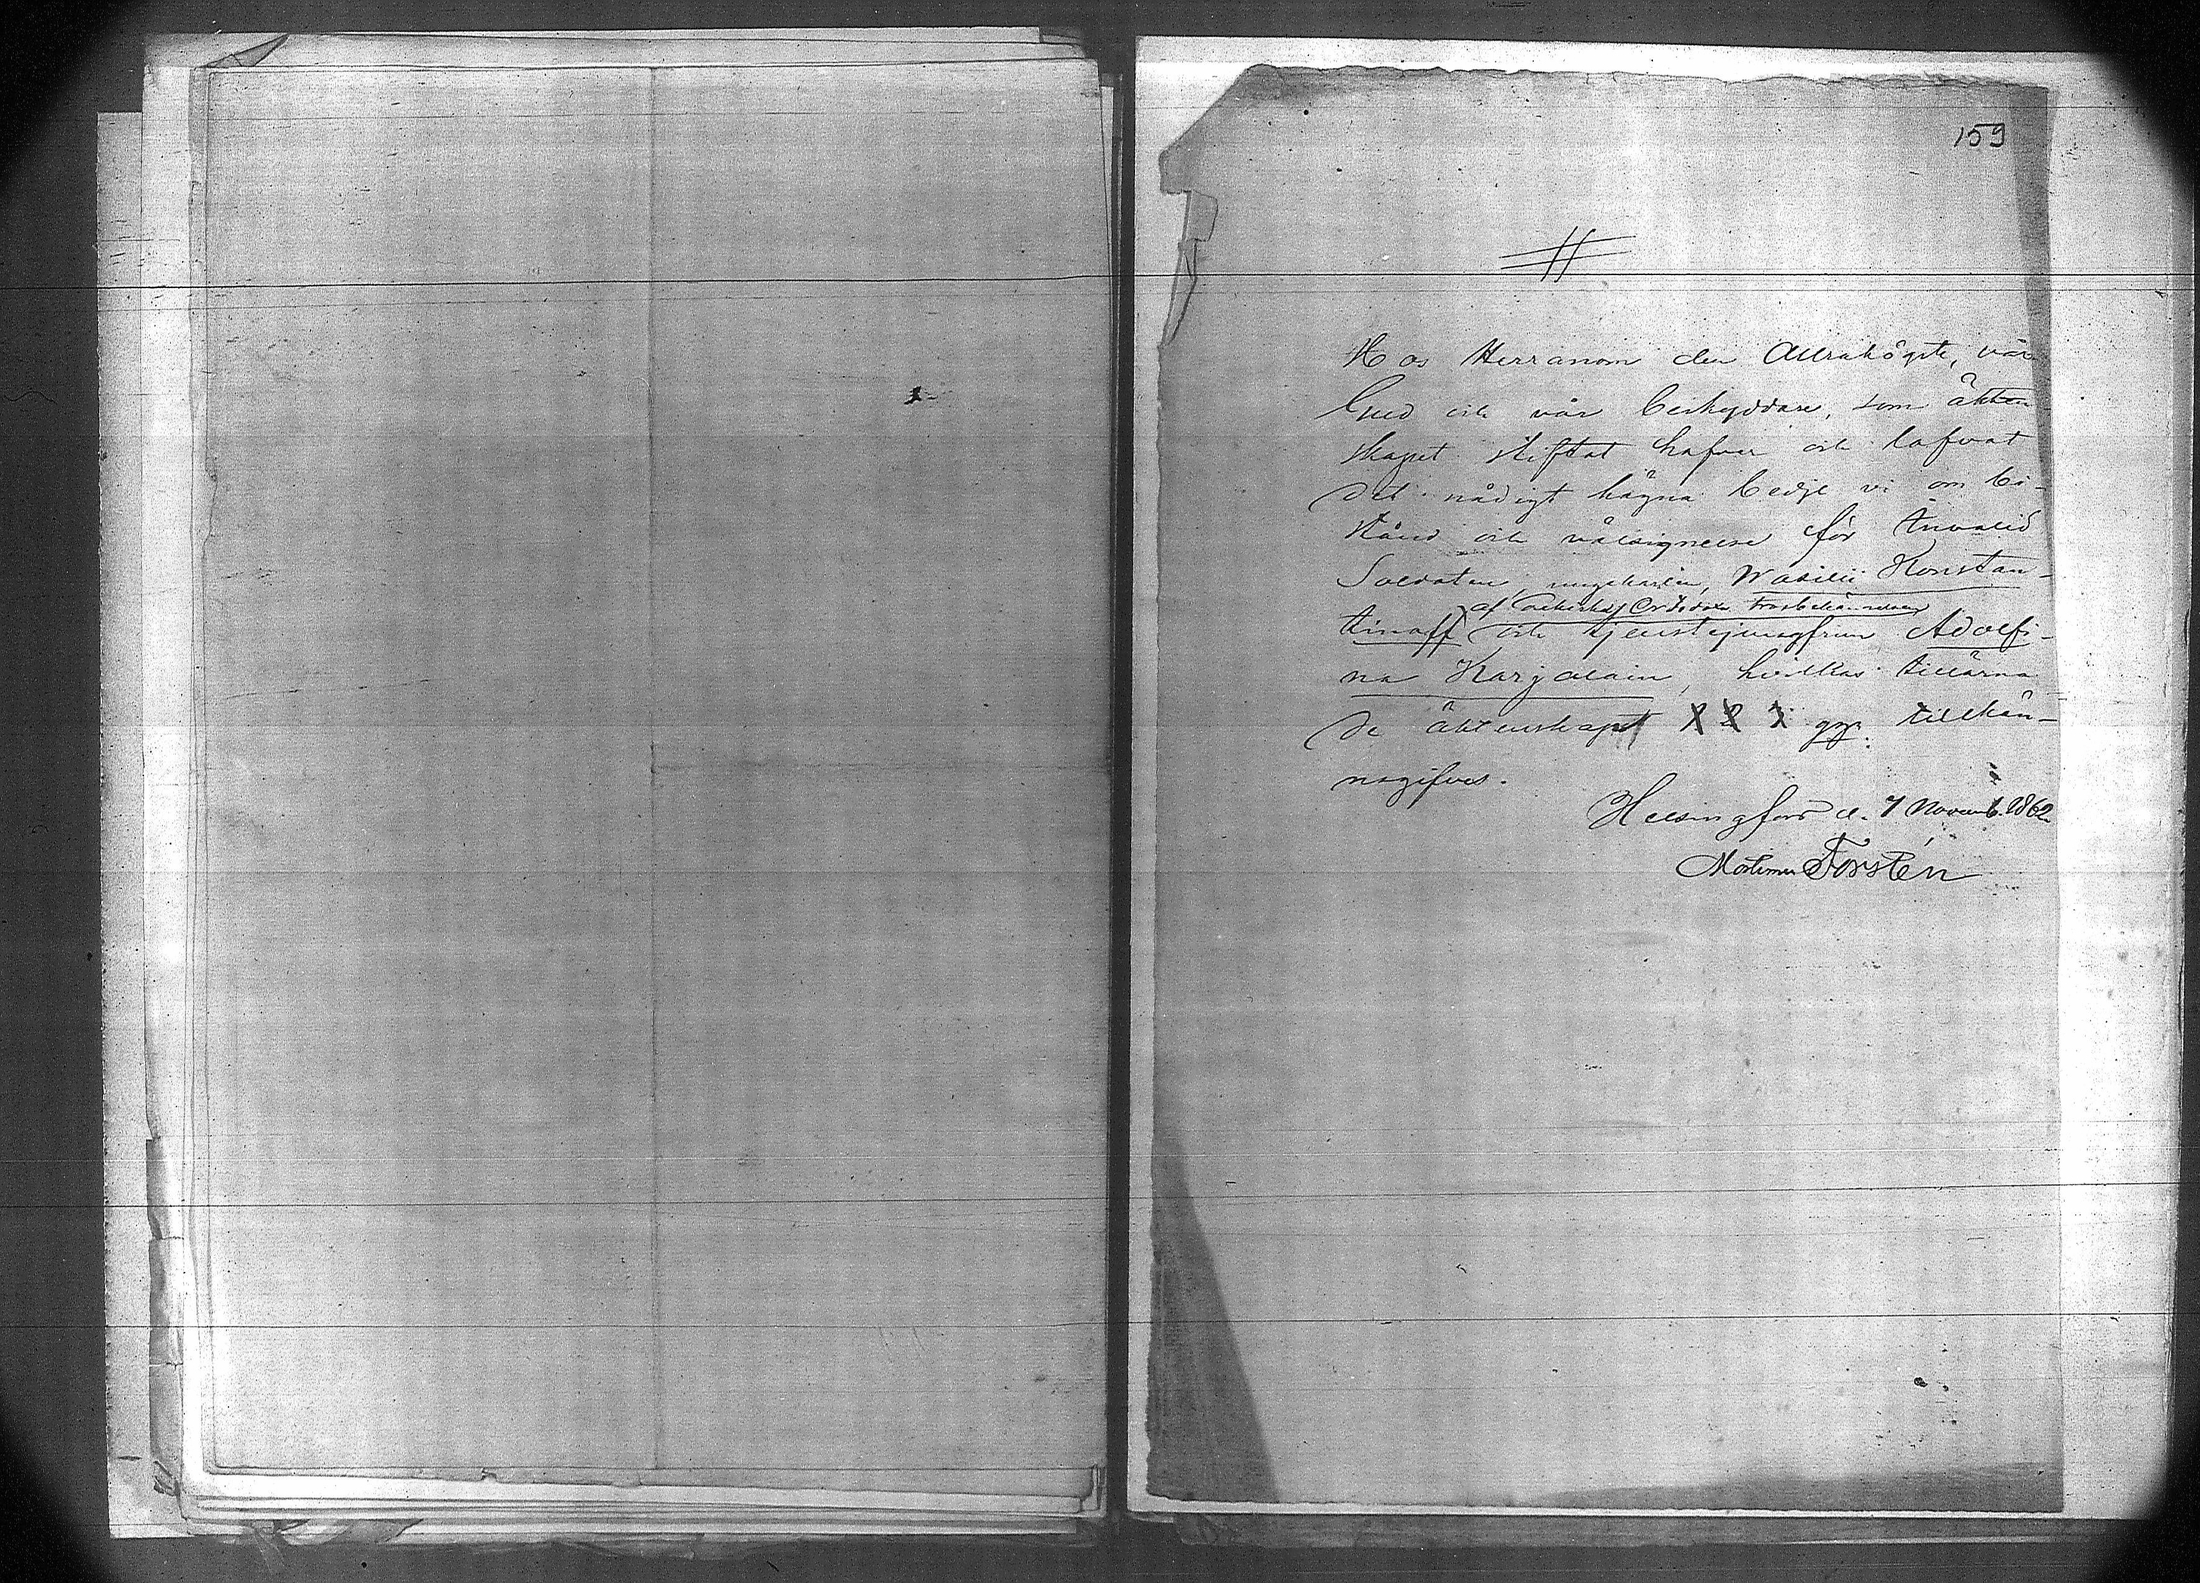 159
Hos Herranom den Allrahögste, vår
Gud och vår beskyddare, som äkten-
skapet stiftat hafver och lofvat
det nådigt hägna bedje vi om bi-
stånd och välsignelse för Invalid
Soldaten, ungkarlen, Wasilii Konstan-
af Orthodox trosbekännelsen
tinoff och tjenstejungfrun Adolfi-
na Karjalain, hvilkas tillärna-
de äktenskap 1 2 3 gg. tillkän-
nagifves.
Helsingfors d. 7 Novemb. 1862
Mortimer Forstén